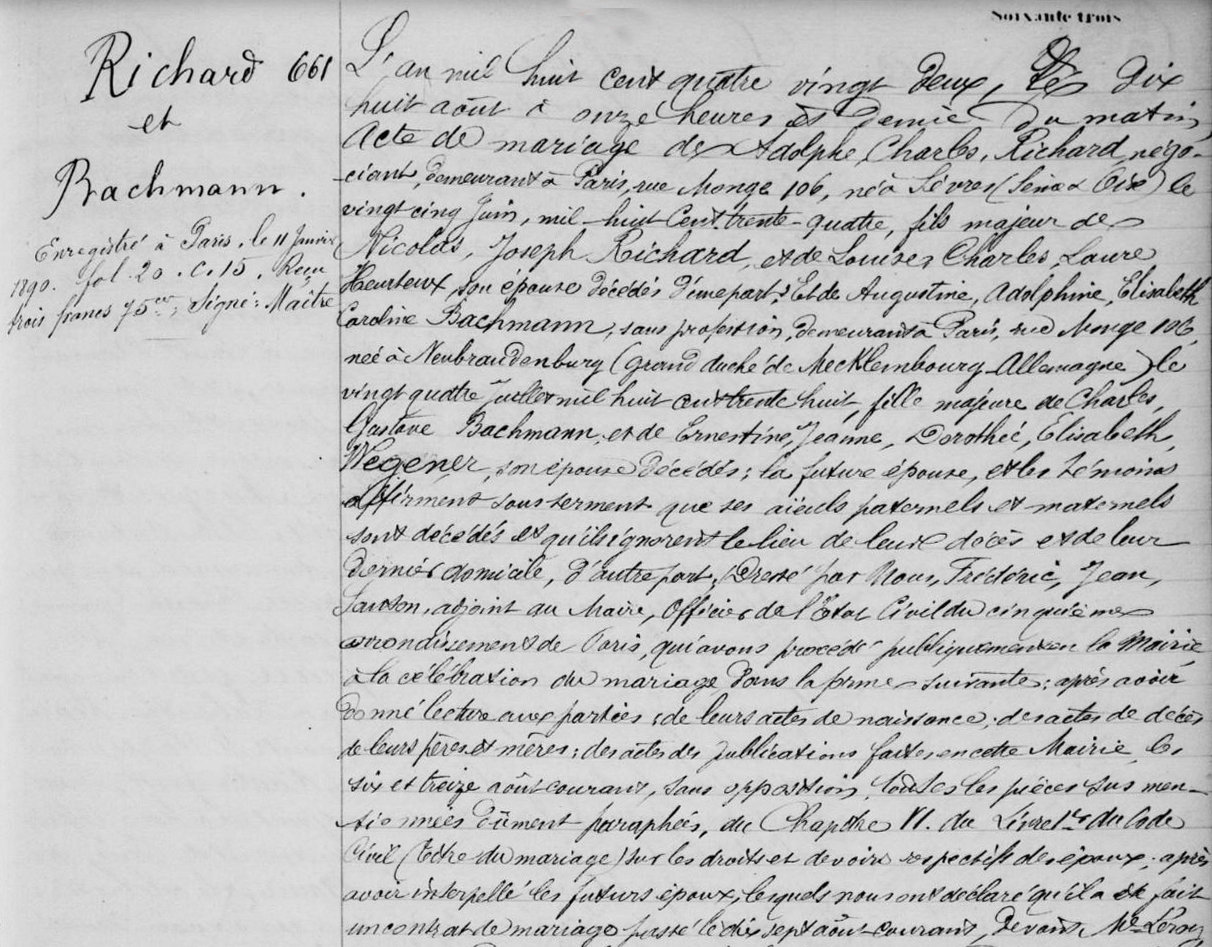 Soixante trois
Richard 661
et
Bachmann.
Enregistré à Paris, le 11 Janvier
1890. fol. 20. C. 15. Reçu
trois francs 75 ces. Signé: Maître
L'an mil huit cent quatre vingt deux, le dix
huit août à onze heures et demie du matin,
Acte de mariage de Adolphe, Charles, Richard, négo-
ciant, demeurant à Paris, rue Monge 106, né à Sèvres (Seine & Oise) le
vingt cinq Juin, mil huit cent trente-quatre, fils majeur de
Nicolas, Joseph Richard, et de Louise, Charles, Laure
Heurteux, son épouse décédés d'une part; Et de Augustine, Adolphine, Elisabeth
Caroline Bachmann, sans profession, demeurant à Paris, rue Monge 106,
née à Neubrandenburg (grand duché de Mecklembourg Allemagne) le
vingt quatre Juillet mil huit cent trente huit, fille majeure de Charles,
Gustave Bachmann, et de Ernestine, Jeanne, Dorothée, Elisabeth,
Wegener, son épouse décédés; la future épouse, et les témoins
affirment sous serment que ses aïeuls paternels et maternels
sont décédés et qu'ils ignorent le lieu de leur décès et de leur
dernier domicile, d'autre part, Dressé par Nous, Frédéric, Jean,
Sauton, adjoint au Maire, Officier de l'Etat Civil du cinquième
arrondissement de Paris, qui avons procédé publiquement en la Mairie
à la célébration du mariage dans la forme suivante: après avoir
donné lecture aux parties: de leurs actes de naissance, des actes de décès
de leurs pères et mères; des actes des publications faites en cette Mairie les
six et treize août courant, sans opposition, toutes les pièces sus men-
tionnées dûment paraphées, du Chapitre VI. du Livre 1er du Code
Civil (Titre du mariage) sur les droits et devoirs respectifs des époux; après
avoir interpellé les futurs époux, lesquels nous ont déclaré qu'il a été fait
un contrat de mariage passé le dix sept août courant, devant Me Leroy,